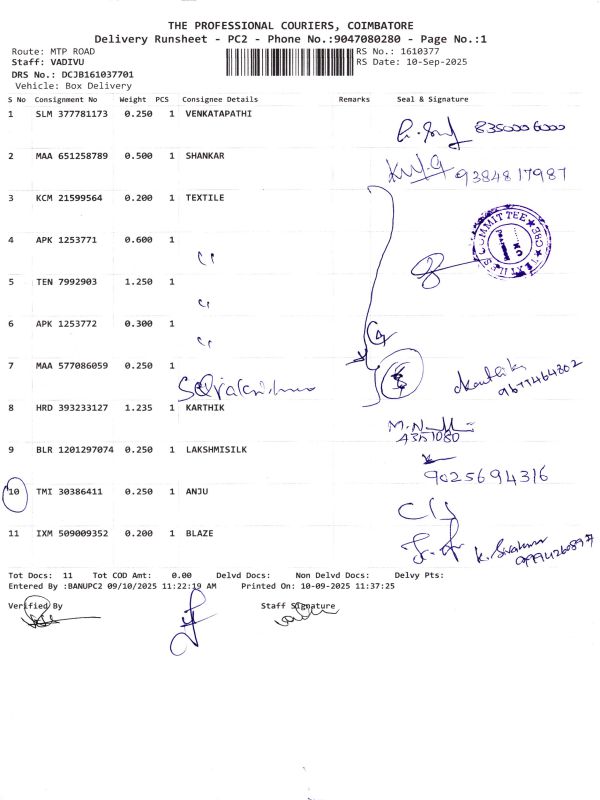 THE PROFESSIONAL COURIERS, COIMBATORE
Delivery Runsheet - PC2 - Phone No.:9047080280 - Page No.:1
Route: MTP ROAD RS No.: 1610377
Staff: VADIVU RS Date: 10-Sep-2025
DRS No.: DCJB161037701
Vehicle: Box Delivery
S No Consignment No Weight PCS Consignee Details Remarks Seal & Signature
1 SLM 377781173 0.250 1 VENKATAPATHI
8350006000
2 MAA 651258789 0.500 1 SHANKAR
9384817987
3 KCM 21599564 0.200 1 TEXTILE
COMMITTEE
4 APK 1253771 0.600 1
5 TEN 7992903 1.250 1
6 APK 1253772 0.300 1
7 MAA 577086059 0.250 1
8 HRD 393233127 1.235 1 KARTHIK
9 BLR 1201297074 0.250 1 LAKSHMISILK
9025694316
10 TMI 30386411 0.250 1 ANJU
11 IXM 509009352 0.200 1 BLAZE
Tot Docs: 11 Tot COD Amt: 0.00 Delvd Docs: Non Delvd Docs: Delvy Pts:
Entered By :BANUPC2 09/10/2025 11:22:19 AM Printed On: 10-09-2025 11:37:25
Verified By Staff Signature